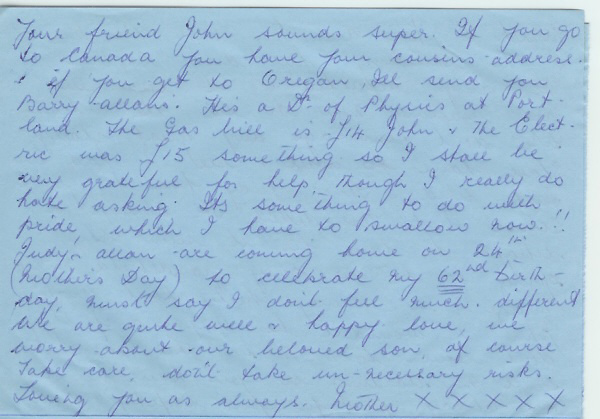 Your friend John sounds super. If you go
to Canada you have your cousins address.
& if you get to Oregan, Ill send you
Barry allans. He's a Dr. of Physics at Port-
land. The Gas bill is £14 John & The Elect-
ric was £15 something so I shall be
very grateful for help, though I really do
hate asking. Its something to do with
pride which I have to swallow now.!!
Judy & allan are coming home on 24th
(Mother's Day) to celebrate my 62nd birth-
day, must say I don't feel much different
We are quite well & happy love, we
worry about our beloved son, of course
Take care, don't take un-necessary risks.
Loving you as always. Mother X X X X X